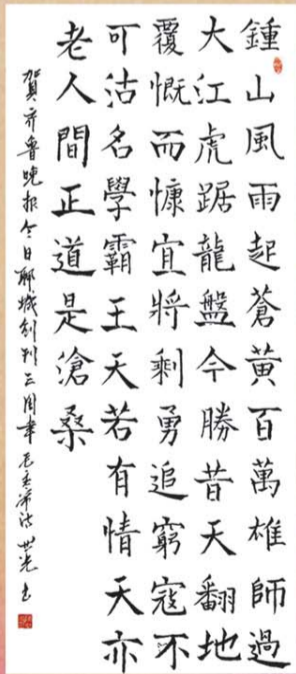 鍾山風雨起蒼黃百萬雄師過
大江虎踞龍盤今勝昔天翻地
覆慨而慷宜將剩勇追窮寇不
可沽名學霸王天若有情天亦
老人間正道是滄桑
賀齐鲁晚报今日聊城创刊三周年 世光书